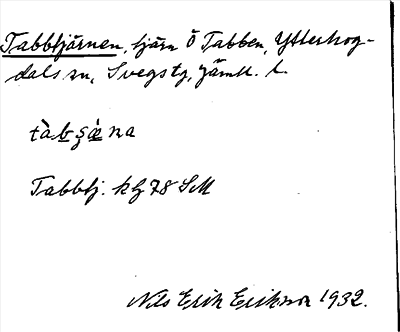 Tabbtjärnen, tjärn Ö Tabben, Ytterhog-
dals sn, Svegs tg, Jämtl. l.
tàbʂæ̀na
Tabbtj. kbl 78 SM
Nils Erik Erikson 1932.